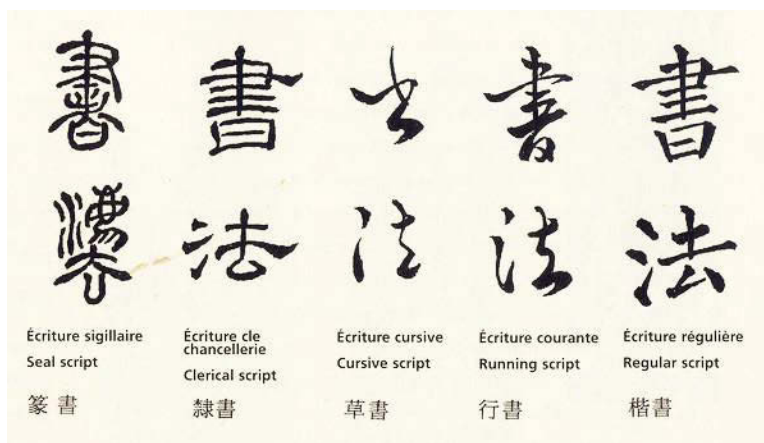 書 書 書 書 書
灋 法 法 法 法
Écriture sigillaire
Seal script
篆 書
Écriture cle
chancellerie
Clerical script
隸書
Écriture cursive
Cursive script
草書
Écriture courante
Running script
行書
Écriture régulière
Regular script
楷書